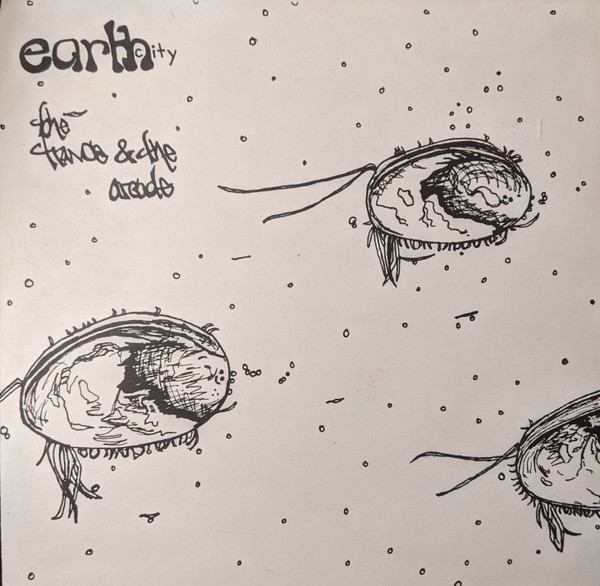 earth city
the
trance & the
arcade